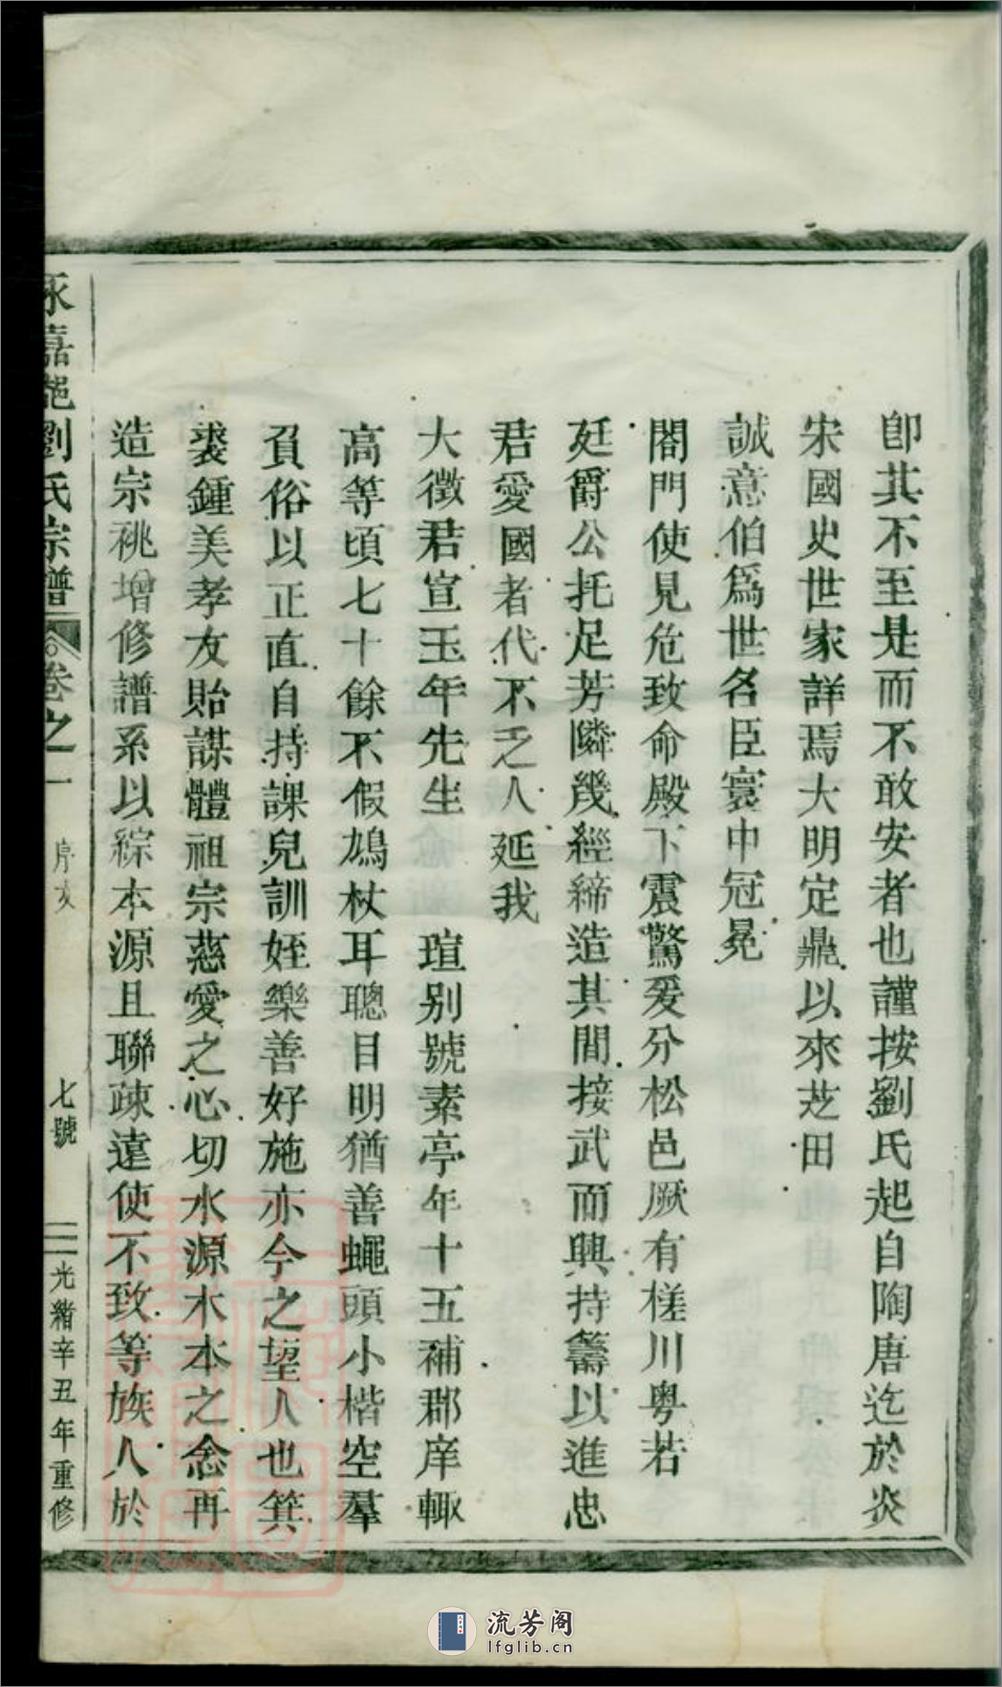 卽其不至是而不敢安者也謹按劉氏起自陶唐迄於炎
宋國史世家詳焉大明定鼎以來芝田
誠意伯爲世名臣寰中冠冕
閤門使見危致命殿下震驚爰分松邑厥有槎川粤若
廷爵公托足芳隣幾經締造其間接武而興持籌以進忠
君愛國者代不乏人延我
大徵君宣玉年先生 瑄别號素亭年十五補郡庠輙
高等頃七十餘不假鳩杖耳聰目明猶善蠅頭小楷空羣
負俗以正直自持課兒訓姪樂善好施亦今之望人也箕
裘鍾美孝友貽謀體祖宗慈愛之心切水源木本之念再
造宗祧增修譜系以綜本源且聯疎遠使不致等族人於
永嘉邑劉氏宗譜 卷之一 序文 七號 光緒辛丑年重修
流芳阁
lfglib.cn